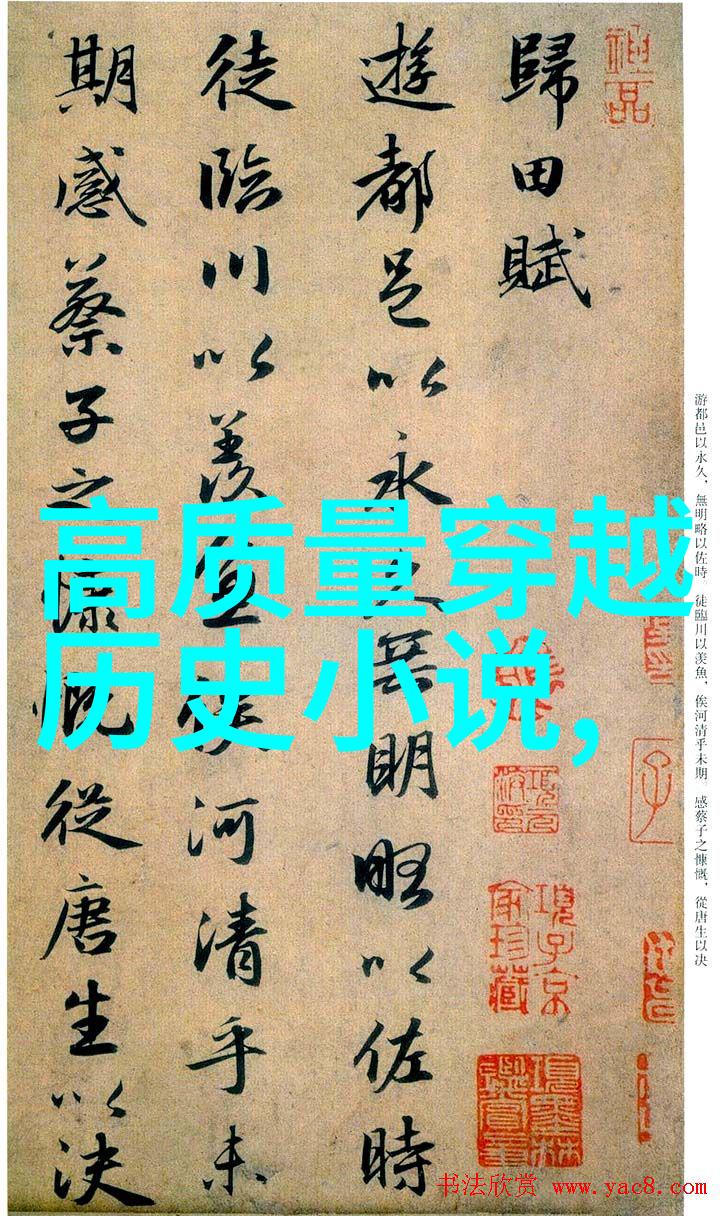 神品
歸田賦
遊都邑以永久無明略以佐時
徒臨川以羨魚俟河清乎未
期感蔡子之慷慨從唐生以決
高质量穿越
历史小说,
項子京家珍藏
項墨林鑑賞章
游都邑以永久，無明略以佐時。徒臨川以羨魚，俟河清乎未期。感蔡子之慷慨，從唐生以决
书法欣赏 www.yac8.com